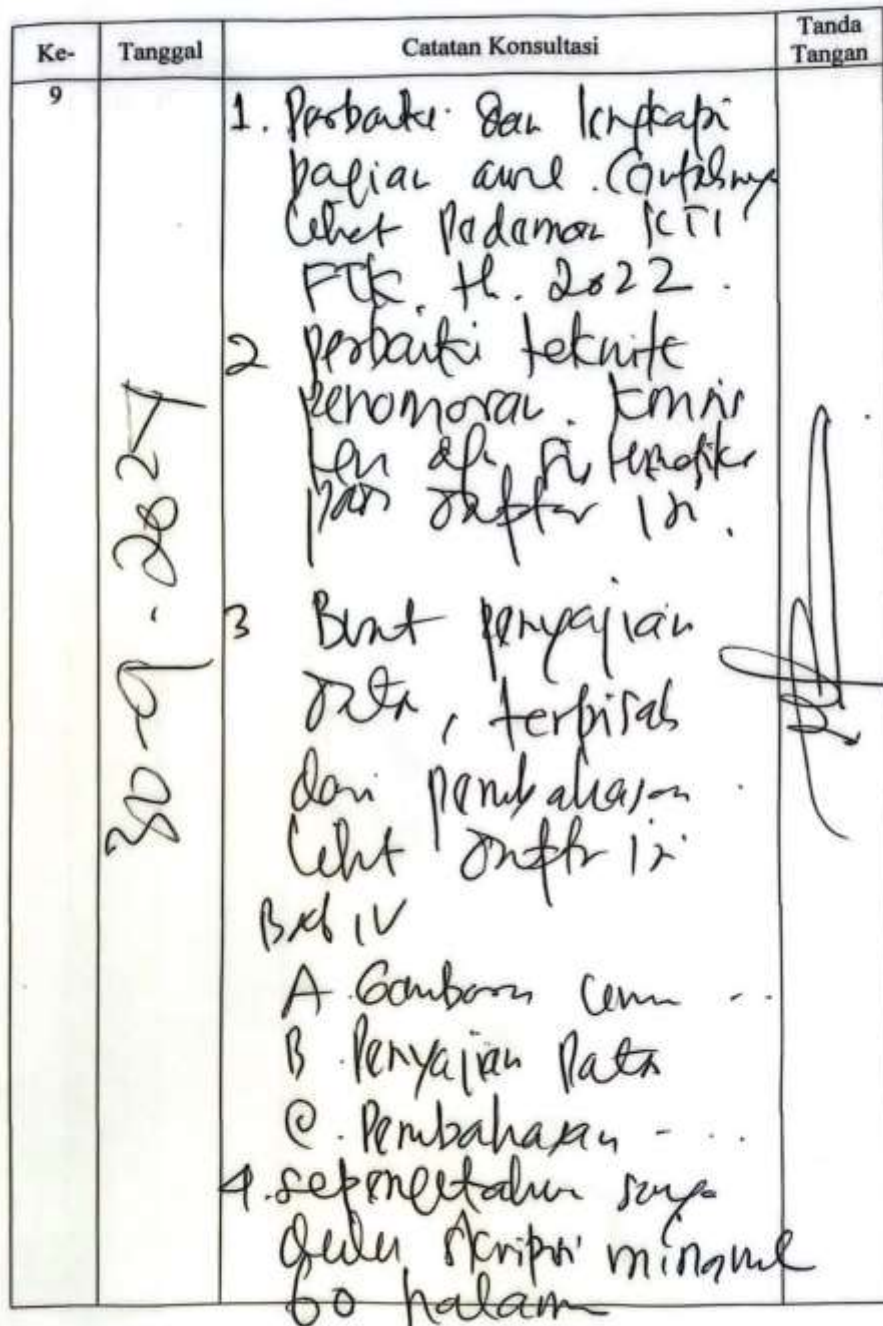 Ke-
Tanggal
Catatan Konsultasi
Tanda
Tangan
9
30-9-2024
1. Perbaiki dan lengkapi
bagian awal. Contohnya
lihat Pedoman KTI
FTK. th. 2022.
2 perbaiki teknik
penomoran.
dari daftar isi.
3 Buat penyajian
data, terpisah
dari pembahasan.
lihat daftar isi
Bab IV
A Gambaran Umum ...
B. Penyajian Data
C. Pembahasan ...
4. sepengetahuan saya
dulu skripsi minimal
60 halaman